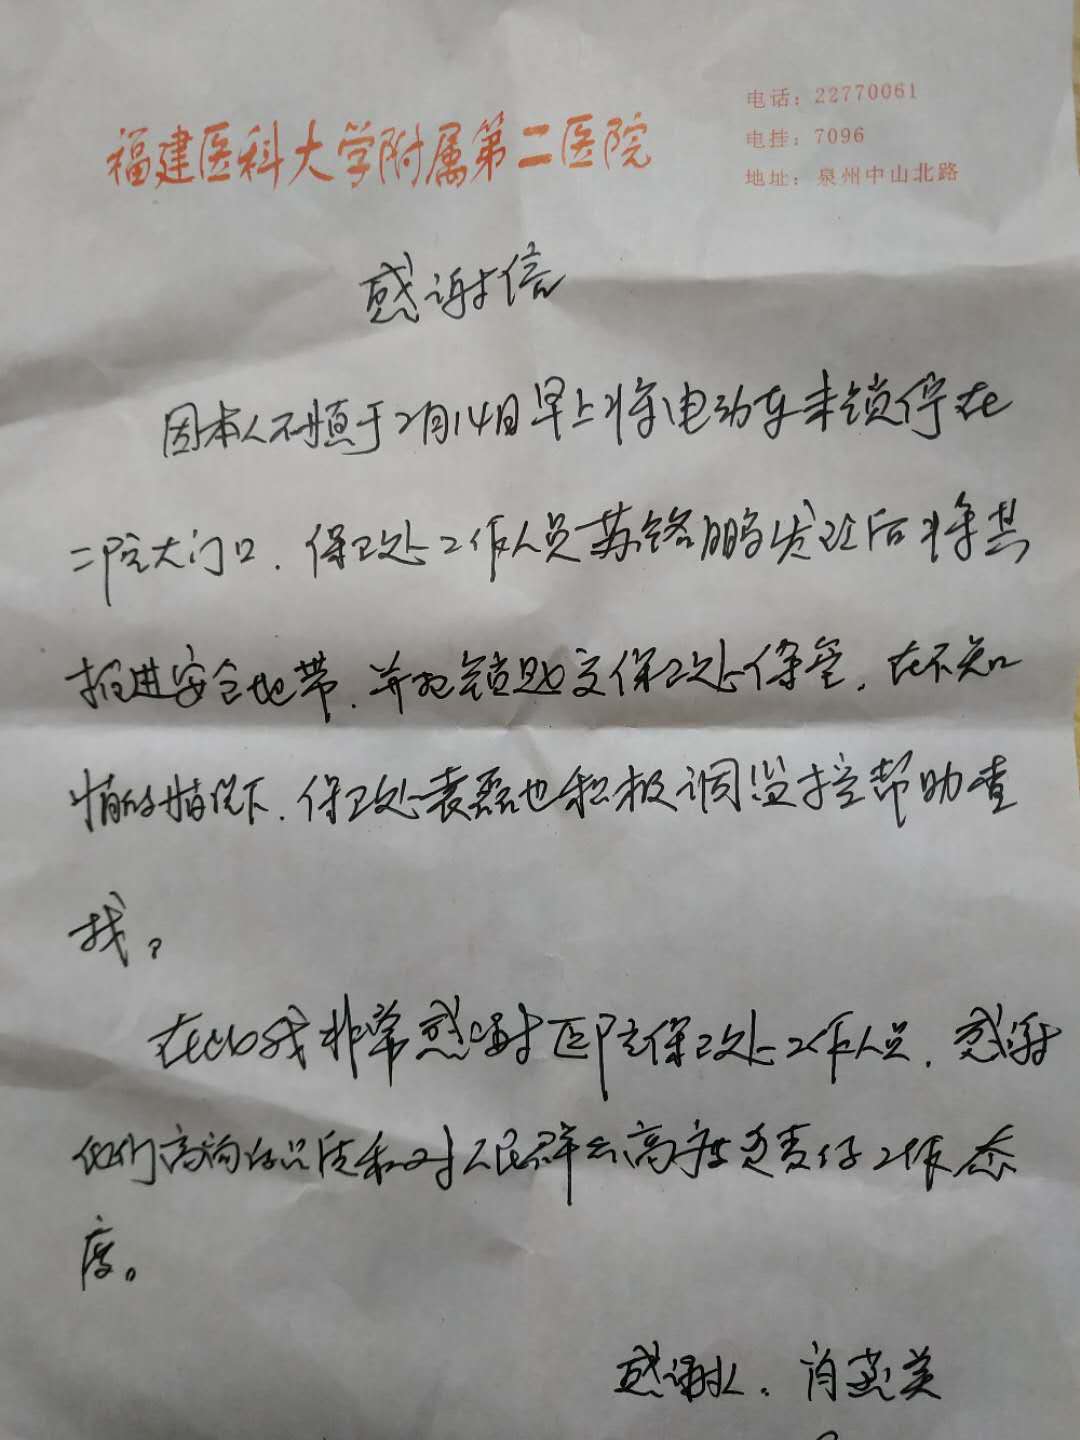 福建医科大学附属第二医院
电话：22770061
电挂：7096
地址：泉州中山北路
感谢信
因本人不慎于2月14日早上将电动车未锁停在
二院大门口，保卫处工作人员苏铭鹏发现后将其
推进安全地带，并把锁匙交保卫处保管，在不知
情的情况下，保卫处袁磊也积极调监控帮助查
找。
在此我非常感谢医院保卫处工作人员，感谢
他们高尚的品质和对人民群众高度负责任工作态
度。
感谢人：肖燕美